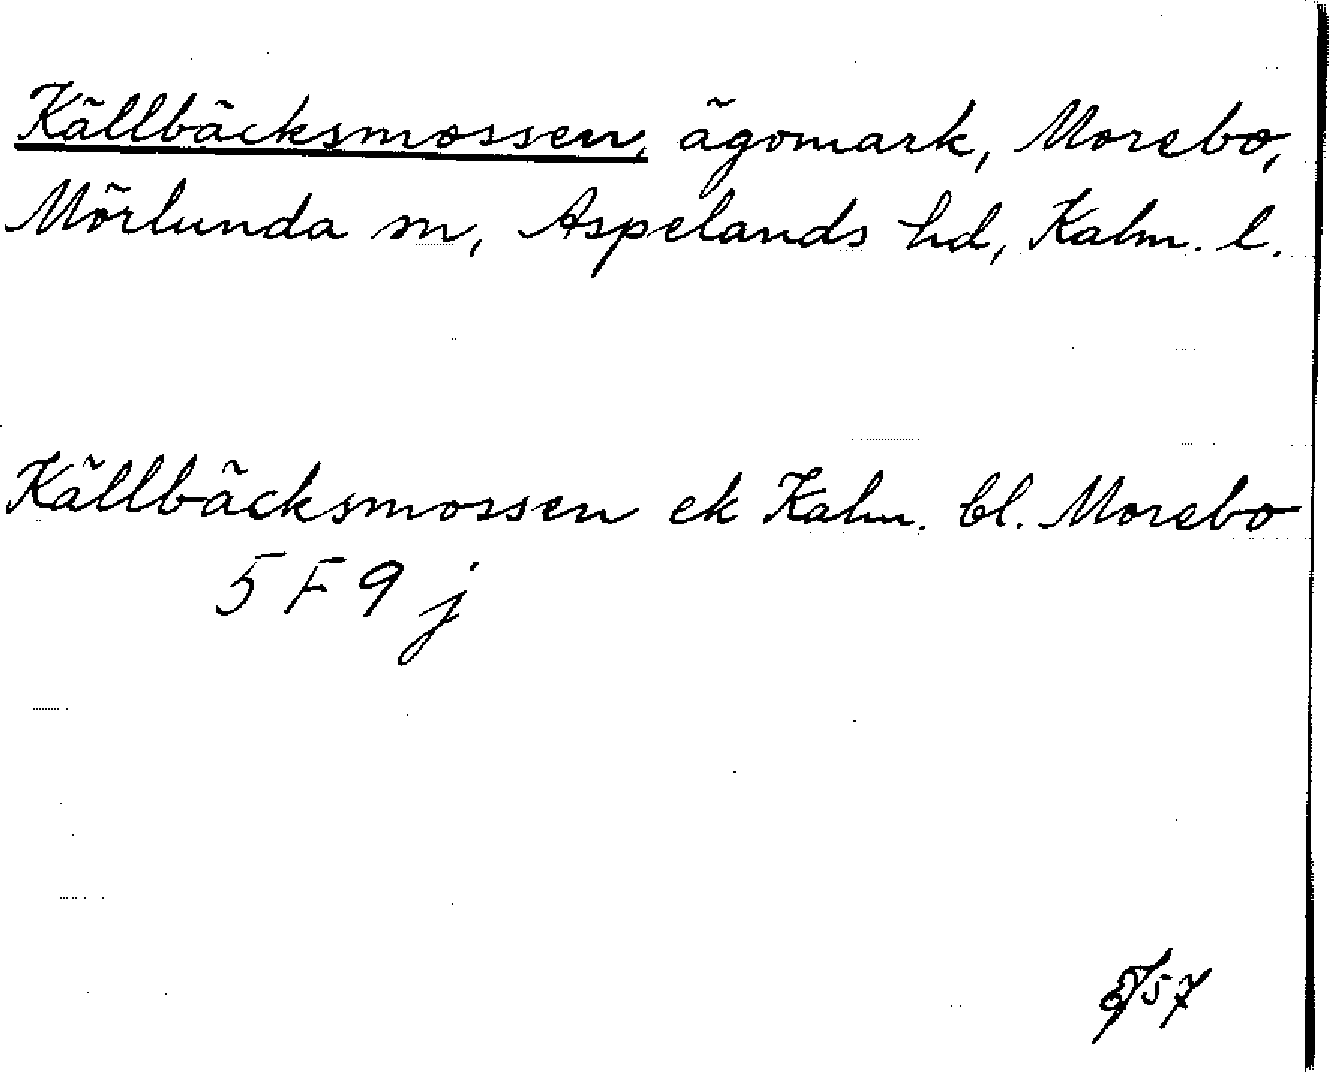 Källbäcksmossen, ägomark, Morebo,
Mörlunda sn, Aspelands hd, Kalm. l.
Källbäcksmossen ek Kalm. bl. Morebo
5 F 9 j